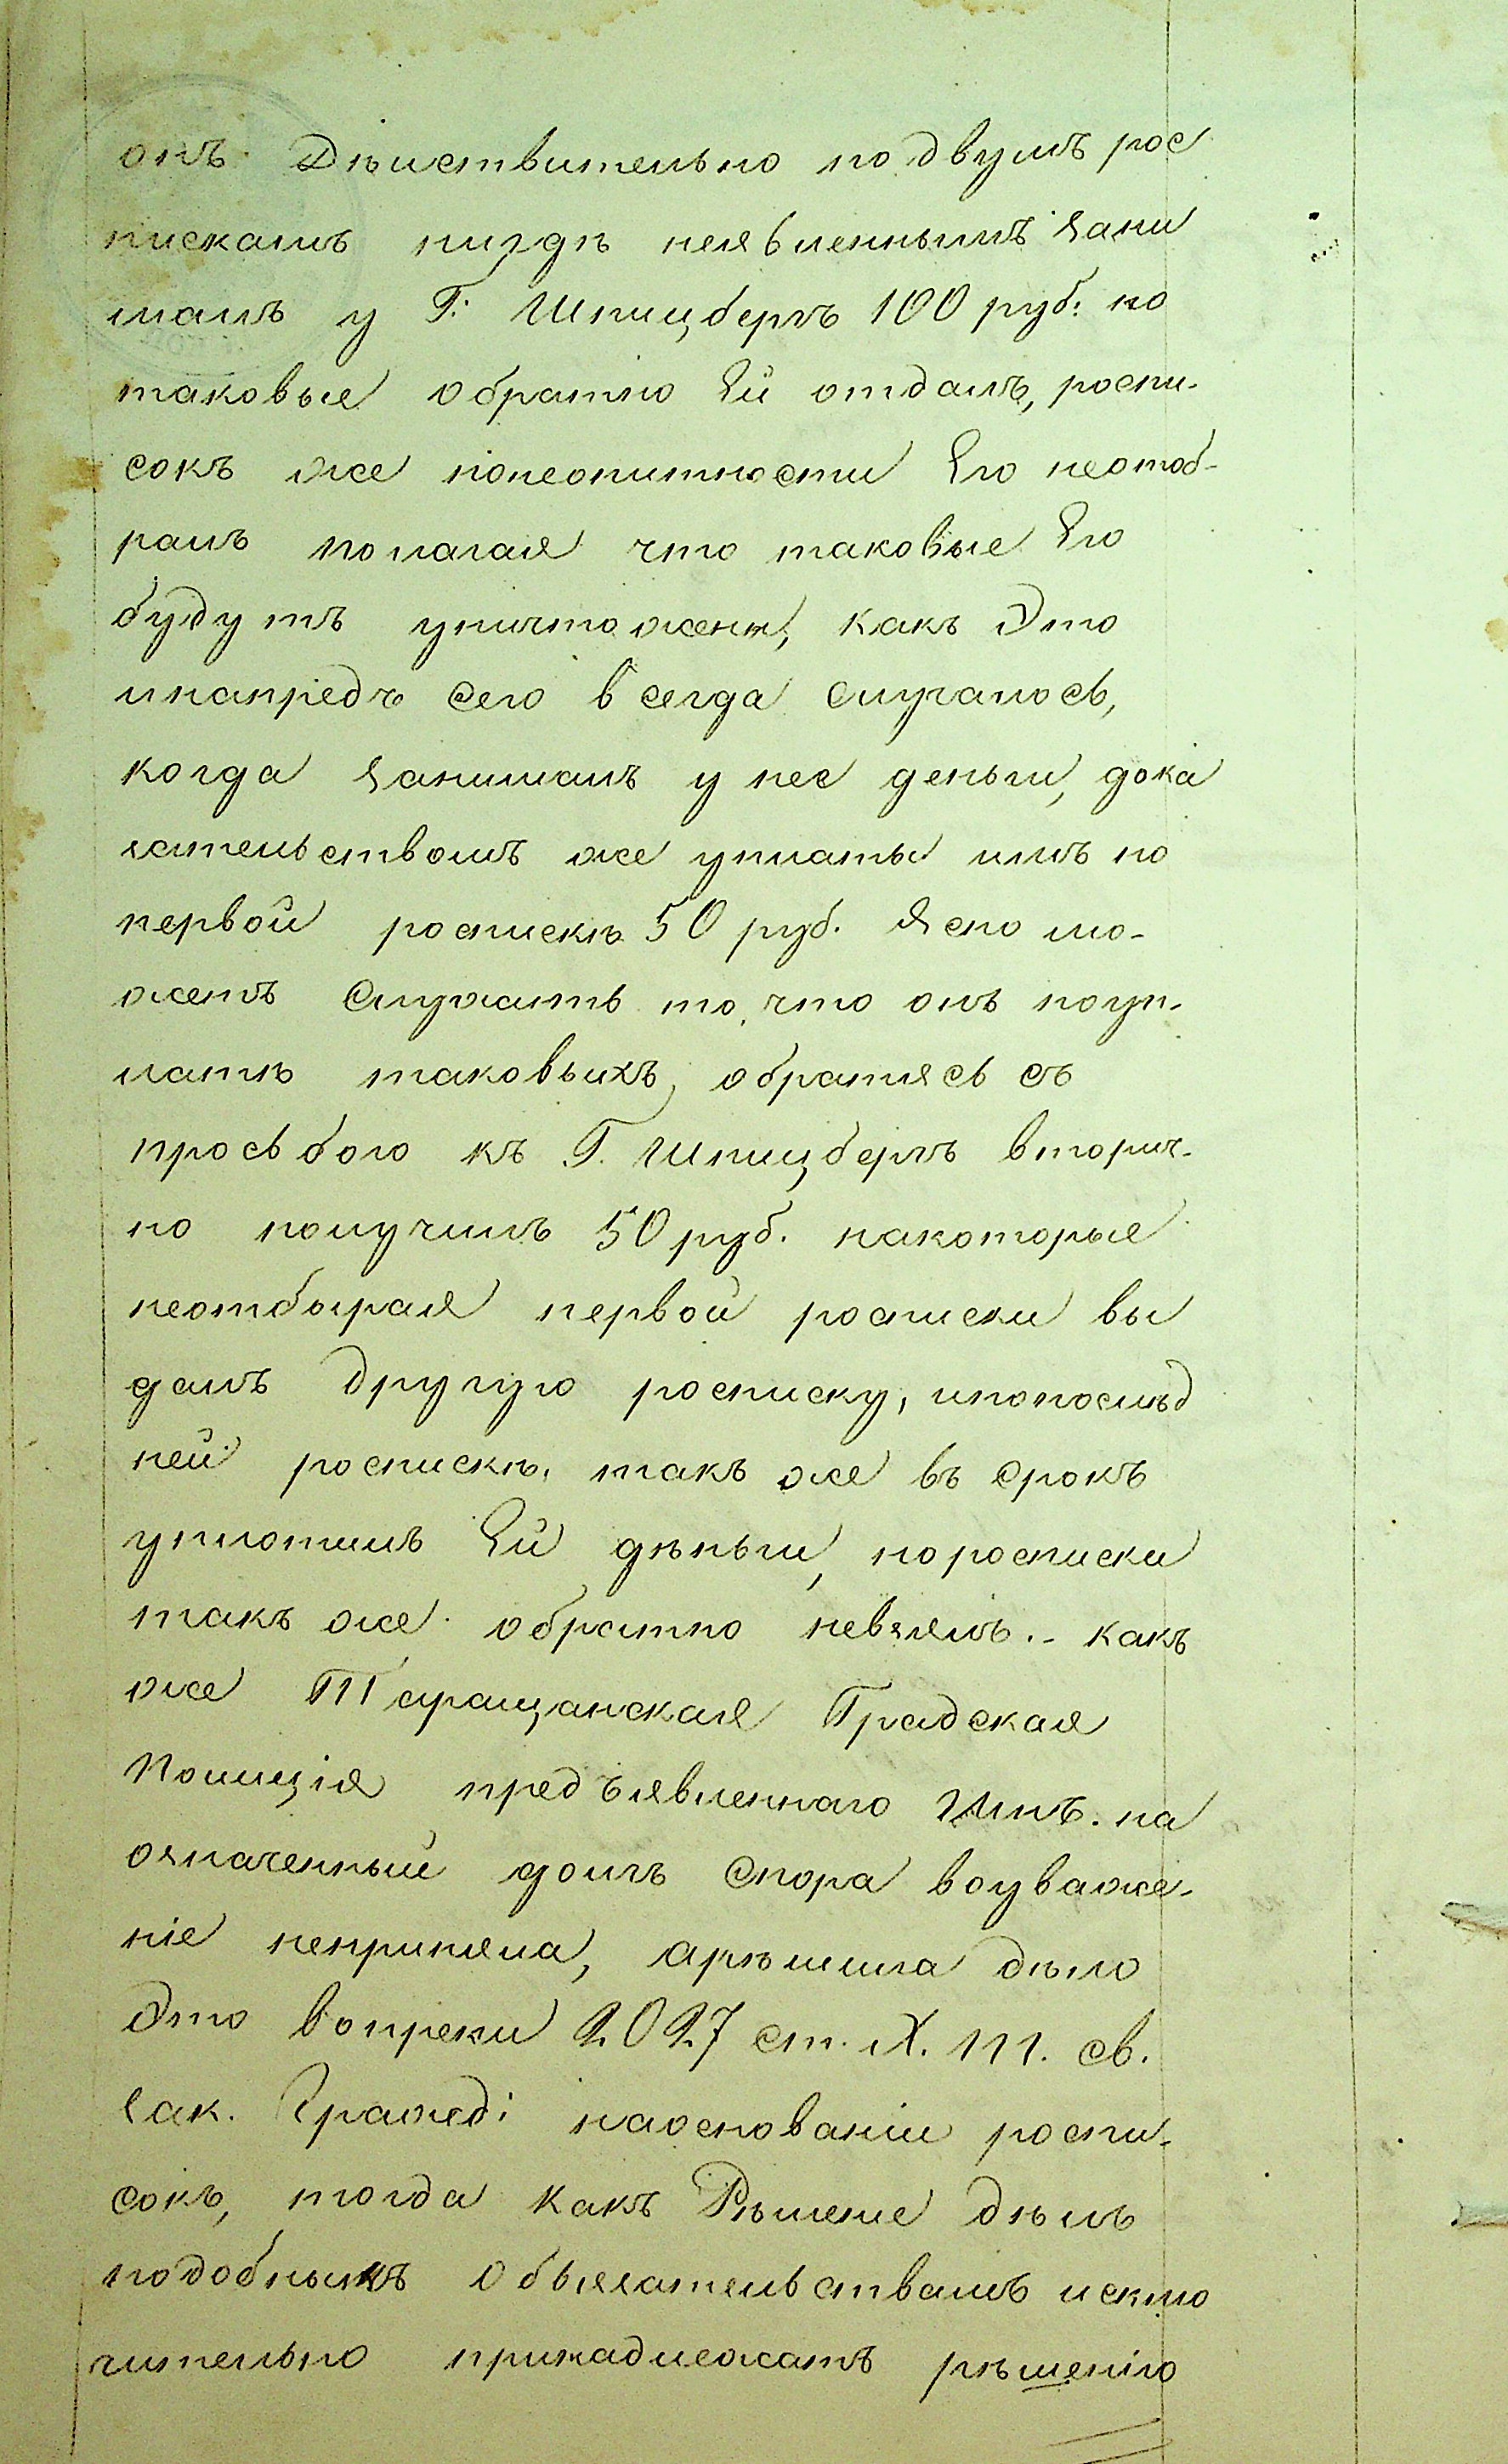 онъ Дѣиствительно по двумъ рос
пискамъ нигдѣ неявленнымъ Зани
малъ у Г: Шпицбергъ 100 руб: но
таковые обратно Ей отдалъ, роспи-
сокъ же понеопитности Его неотоб-
ралъ полагая что таковые Его
будутъ уничтожены, какъ Это
инапредъ Сего всегда Случалось,
когда Занималъ у нее деньги, дока
зательствомъ же уплаты имъ по
первой роспискѣ 50 руб. Ясно мо-
жетъ Служить то, что онъ поуп-
латѣ таковыхъ, обратясь съ
просьбою къ Г. Шпицбергъ вторич-
но получилъ 50 руб. накоторые
неотбирая первой росписки вы
далъ другую росписку, ипопослѣд
ней роспискѣ, такъ же въ Срокъ
уплотилъ Ей дѣньги, норосписки
такъ же обратно невзялъ.- какъ
же Таращанская Градская
Полиція предъявленнаго Имъ. на
означенный домъ Спора воуваже-
ніе неприняла, арѣшила дѣло
Это вопреки 2027 ст. X. т. св.
Зак. Гражд: наоснованіи роспи-
сокъ, тогда какъ Рѣшение дѣлъ
подобнымъ обязательствамъ исклю
чительно принадлежатъ рѣшенію